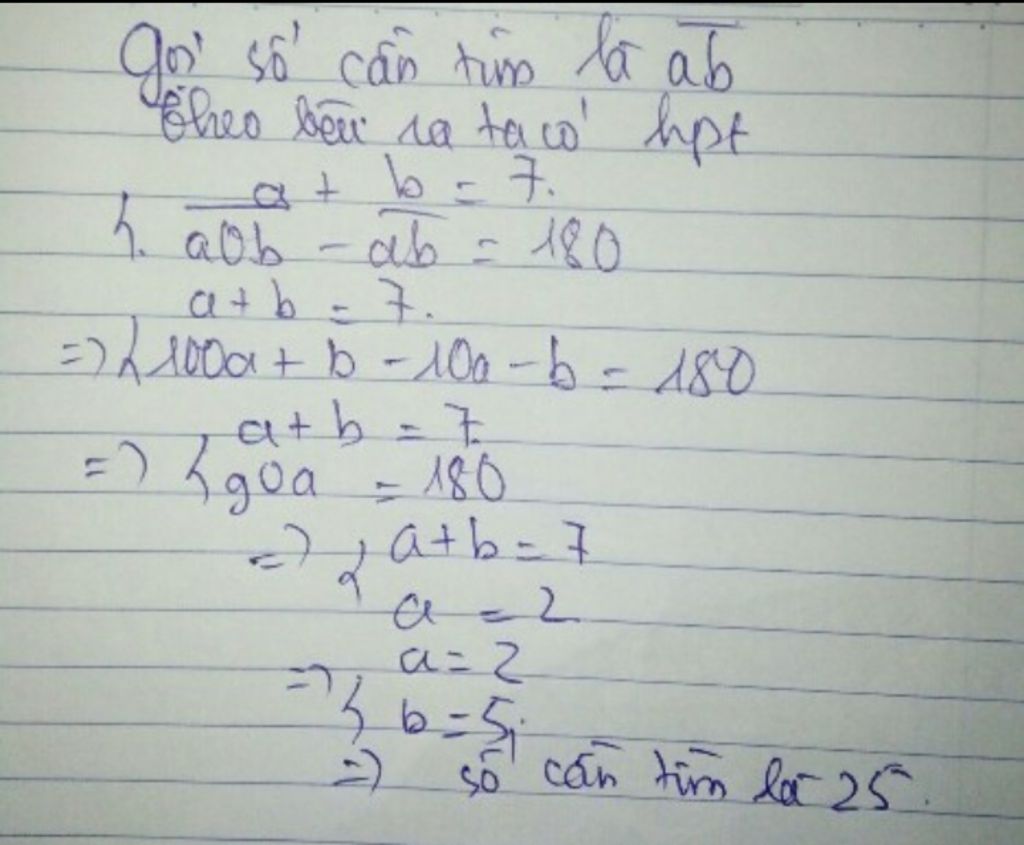 Gọi số cần tìm là ab
Theo bài ra ta có hpt
a + b = 7.
{ a0b - ab = 180
a + b = 7.
=> { 100a + b - 10a - b = 180
a + b = 7
=> { 90a = 180
=> { a + b = 7
a = 2
a = 2
=> { b = 5.
=> số cần tìm là 25.